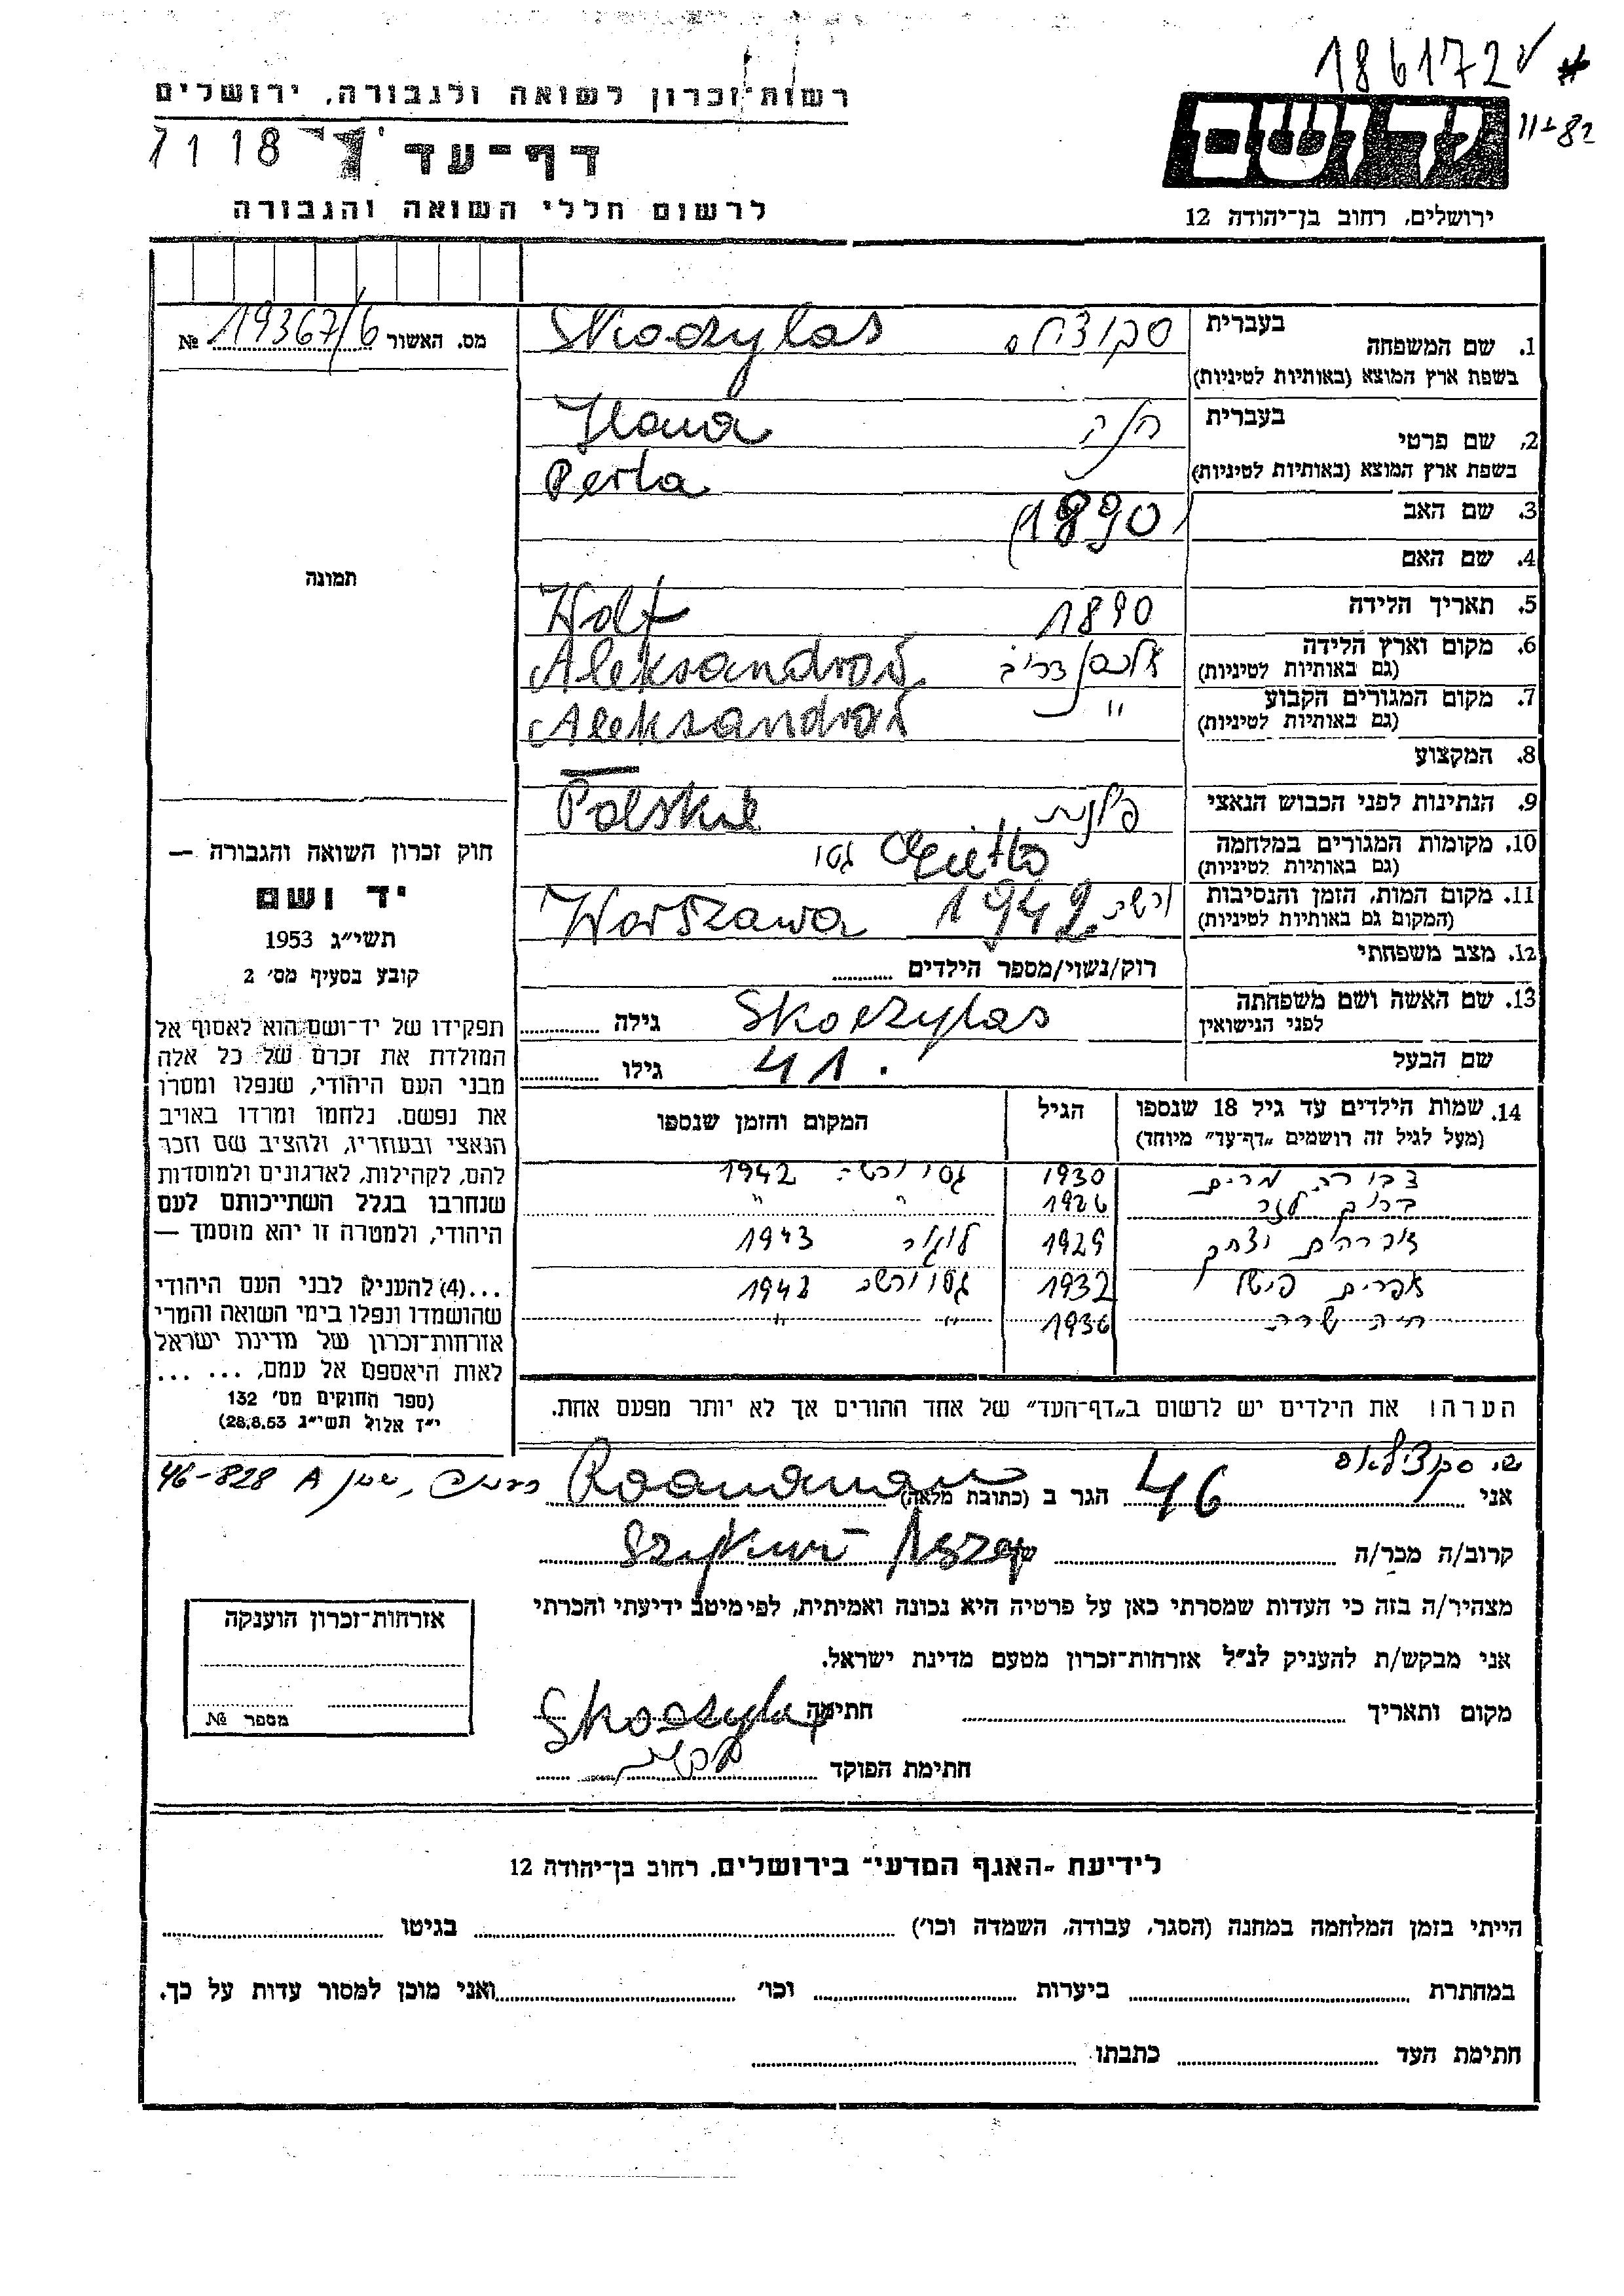 186172 ✓ *
11-82
רשות־זכרון לשואה ולגבורה, ירושלים
1118
דף־עד
לרשום חללי השואה והגבורה
ירושלים, רחוב בן־יהודה 12
מס. האשור 19367/6 №
1. שם המשפחה בעברית Skoczylas
בשפת ארץ המוצא (באותיות לטיניות)
2. שם פרטי בעברית
בשפת ארץ המוצא (באותיות לטיניות) Perla
3. שם האב (1890)
4. שם האם
5. תאריך הלידה 1890 Wolf
6. מקום וארץ הלידה (גם באותיות לטיניות)
7. מקום המגורים הקבוע " (גם באותיות לטיניות)
8. המקצוע
9. הנתינות לפני הכבוש הנאצי
10. מקומות המגורים במלחמה (גם באותיות לטיניות) גטו
11. מקום המות, הזמן והנסיבות (המקום גם באותיות לטיניות) 1942 Warszawa
12. מצב משפחתי רוק/נשוי/מספר הילדים
13. שם האשה ושם משפחתה לפני הנישואין Skoczylas גילה
שם הבעל 41. גילו
14. שמות הילדים עד גיל 18 שנספו הגיל המקום והזמן שנספו
(מעל לגיל זה רושמים "דף־עד" מיוחד)
מרים 1930 גטו ורשה 1942
ברוך 1926 " "
אברהם יצחק 1929 1943
אפרים פישל 1932 גטו ורשה 1942
חיה שרה 1936 " "
הערה! את הילדים יש לרשום ב"דף־העד" של אחד ההורים אך לא יותר מפעם אחת.
תמונה
חוק זכרון השואה והגבורה —
יד ושם
תשי״ג 1953
קובע בסעיף מס׳ 2
תפקידו של יד־ושם הוא לאסוף אל
המולדת את זכרם של כל אלה
מבני העם היהודי, שנפלו ומסרו
את נפשם. נלחמו ומרדו באויב
הנאצי ובעוזריו, ולהציב שם וזכר
להם, לקהילות, לארגונים ולמוסדות
שנחרבו בגלל השתייכותם לעם
היהודי, ולמטרה זו יהא מוסמך —
...(4) להעניק לבני העם היהודי
שהושמדו ונפלו בימי השואה והמרי
אזרחות־זכרון של מדינת ישראל
לאות היאספם אל עמם, ... ...
(ספר החוקים מס׳ 132
י״ז אלול תשי״ג 28.8.53)
אני 46 הגר ב (כתובת מלאה) 46-828 A
קרוב/ה מכר/ה של
מצהיר/ה בזה כי העדות שמסרתי כאן על פרטיה היא נכונה ואמיתית, לפי מיטב ידיעתי והכרתי
אני מבקש/ת להעניק לנ״ל אזרחות־זכרון מטעם מדינת ישראל.
מקום ותאריך חתימה Skoczylas
חתימת הפוקד
אזרחות־זכרון הוענקה
מספר №
לידיעת "האגף המדעי" בירושלים, רחוב בן־יהודה 12
הייתי בזמן המלחמה במחנה (הסגר, עבודה, השמדה וכו׳) בגיטו
במחתרת ביערות וכו׳ ואני מוכן למסור עדות על כך.
חתימת העד כתבתו